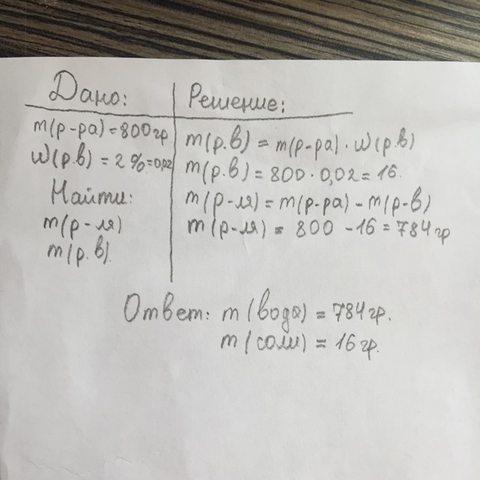 Дано:
m(р-ра) = 800гр
W(р.в) = 2% = 0,02
Найти:
m(р-ля)
m(р.в).
Решение:
m(р.в) = m(р-ра) · W(р.в)
m(р.в) = 800 · 0,02 = 16.
m(р-ля) = m(р-ра) - m(р-в)
m(р-ля) = 800 - 16 = 784гр
Ответ: m(вода) = 784гр.
m(соли) = 16гр.